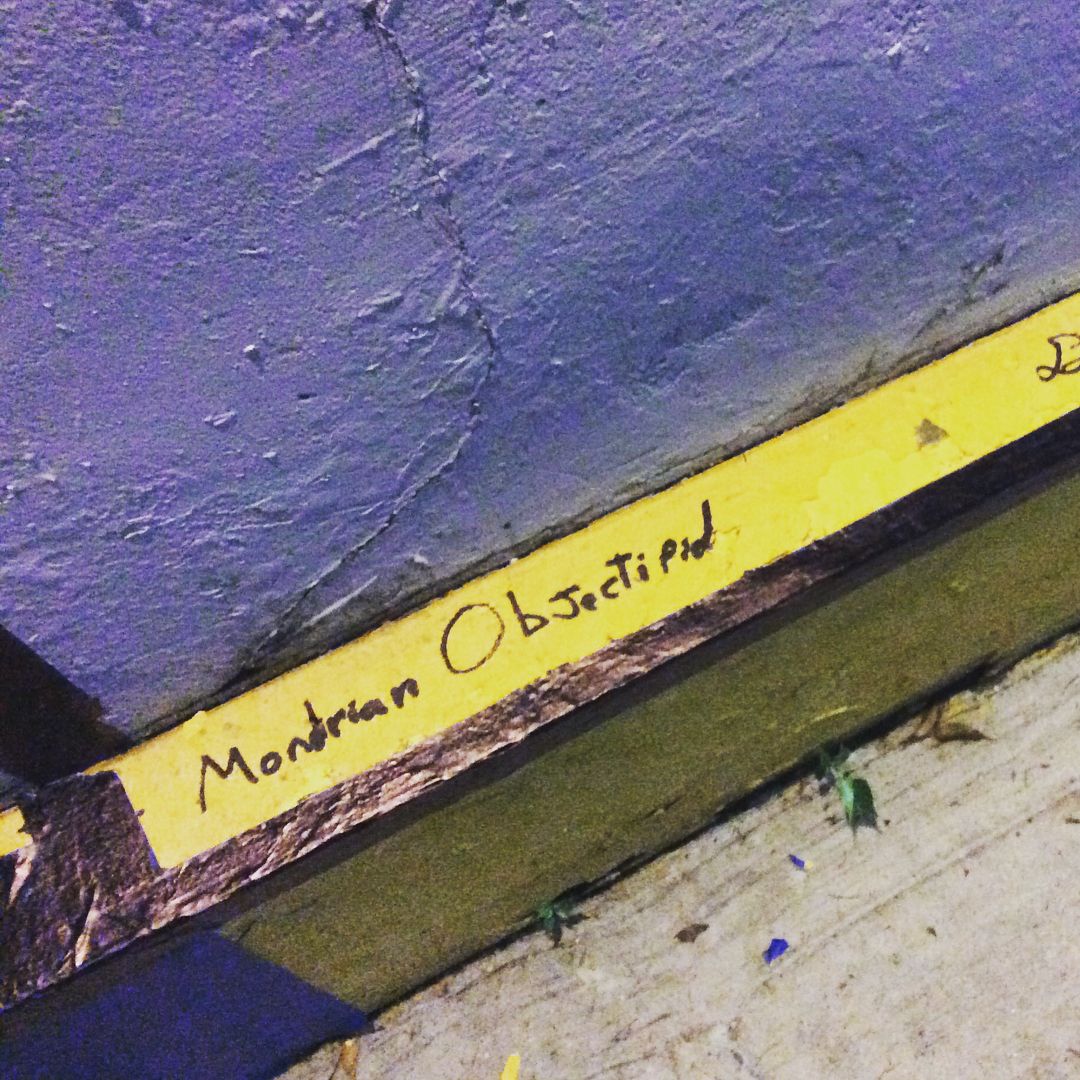 Mondrian Objectipid